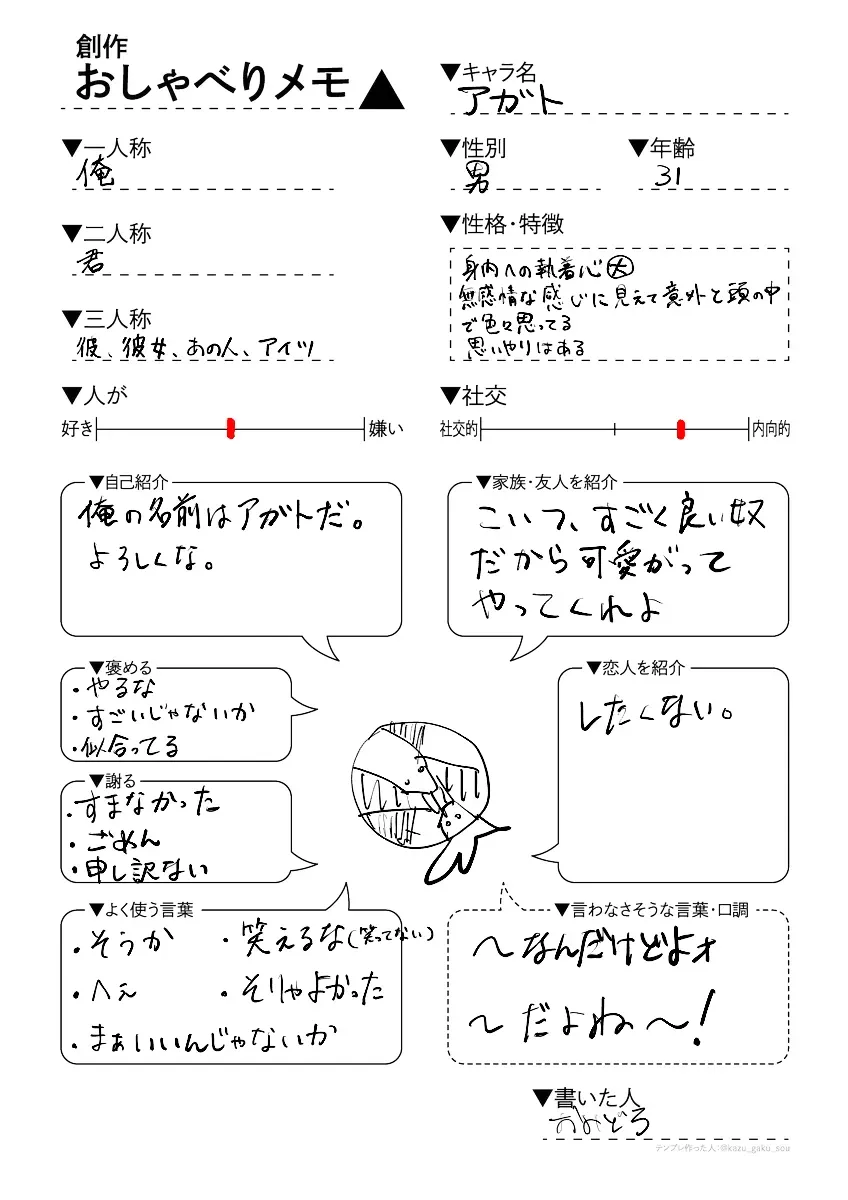 創作
おしゃべりメモ
▼キャラ名
アガト
▼一人称
俺
▼性別
男
▼年齢
31
▼二人称
君
▼性格・特徴
身内への執着心大
無感情な感じに見えて意外と頭の中
で色々思ってる
思いやりはある
▼三人称
彼、彼女、あの人、アイツ
▼人が
好き
嫌い
▼社交
社交的
内向的
▼自己紹介
俺の名前はアガトだ。
よろしくな。
▼家族・友人を紹介
こいつ、すごく良い奴
だから可愛がって
やってくれよ
▼褒める
・やるな
・すごいじゃないか
・似合ってる
▼恋人を紹介
したくない。
▼謝る
・すまなかった
・ごめん
・申し訳ない
▼よく使う言葉
・そうか
・笑えるな(笑ってない)
・へぇ
・そりゃよかった
・まぁいいんじゃないか
▼言わなさそうな言葉・口調
〜なんだけどよォ
〜だよね〜!
▼書いた人
テンプレ作った人:@kazu_gaku_sou